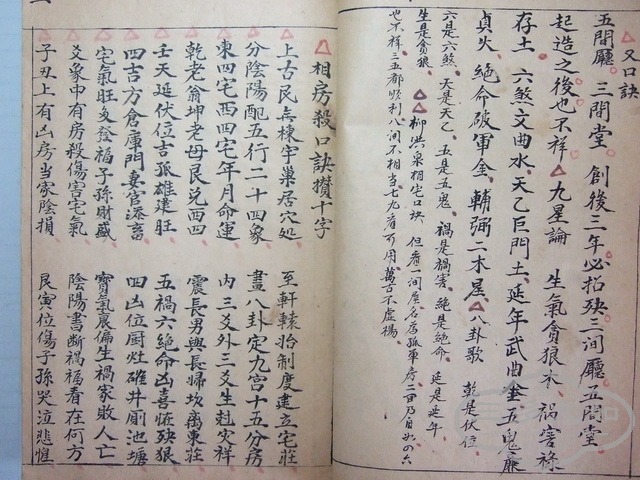 又口訣
五間廳 三間堂 創後三年必招殃三间廳五間堂
起造之後也不祥 九星論 生氣貪狼木 禍害祿
存土 六煞文曲水 天乙巨門土 延年武曲金 五鬼廉
貞火 絶命破軍金 輔弼二木星 八卦歌 乾是伏位
六是六煞 天是天乙 五是五鬼 禍是禍害 絶是絶命 延是延年
生是貪狼 柳洪泉相宅口訣 但看一间屋名為孤 房二
也不祥三五都順利八间不相当七九看可用萬古不虚揚
相房殺口訣攢十字
上古民無棟宇巢居穴処 至軒轅始制度建立宅莊
分陰陽配五行二十四象 畫八卦定九宫十五分房
東四宅西四宅年月命運 内三爻外三爻生尅灾祥
乾老翁坤老母艮兑西四 震長男巽長婦坎离東莊
壬天延伏位吉孤雄建旺 五禍六絶命凶喜怪殃狠
四吉方倉庫門妻官添畜 四凶位厨灶碓井厠池塘
宅氣旺爻發福子孫財盛 寳氣衰偏生禍家敗人亡
爻象中有房殺傷害宅氣 陰陽書断禍福看在何方
子丑上有凶房当家陰損 艮寅位傷子孫哭泣悲惶